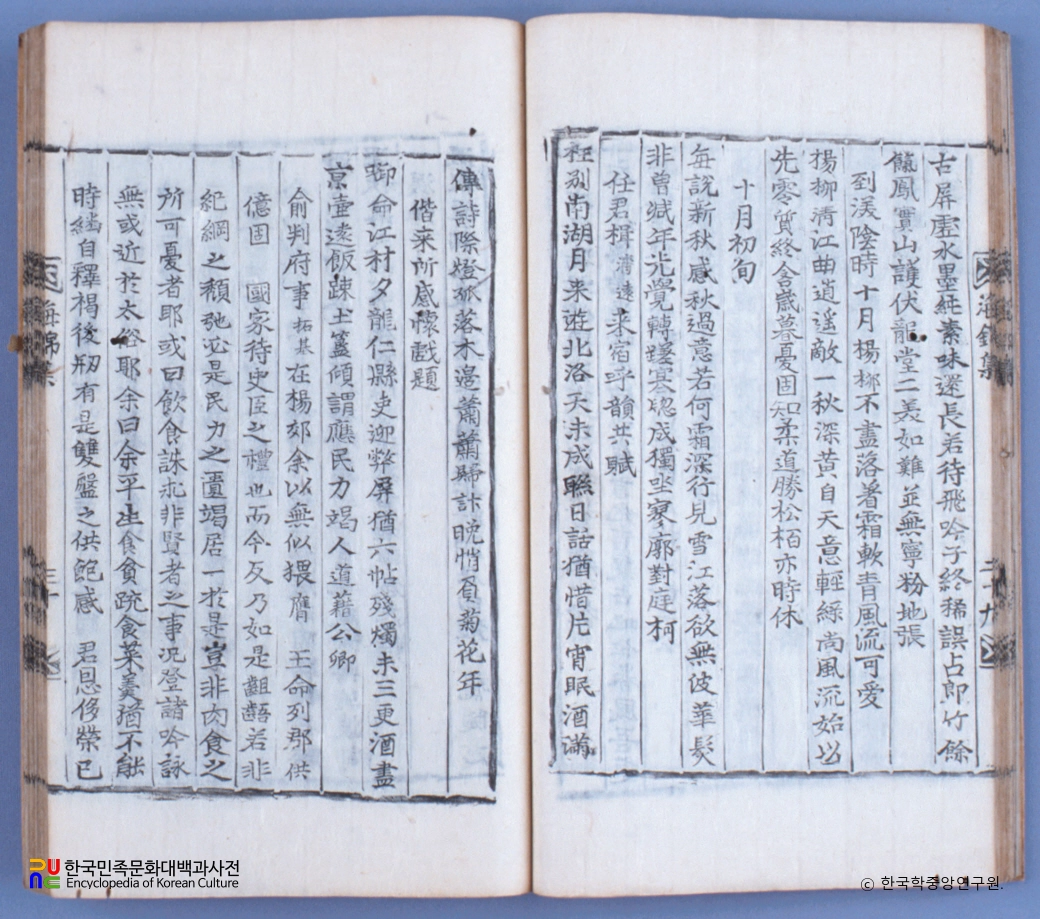 古屏虛水墨純素味還長若待飛吟子終稀誤占郎竹餘
饑鳳實山護伏龍堂二美如難並無寧粉地張
到渼陰時十月楊柳不盡落著霜軟青風流可愛
楊柳淸江曲逍遙敵一秋深黃自天意輕綠尙風流始以
先零質終含歲暮憂固知柔道勝松栢亦時休
十月初旬
每說新秋感秋過意若何霜深行見雪江落欲無波華髮
非曾減年光覺轉蹉寒聦成獨坐寥廓對庭柯
任君楫淸遠來宿呼韻共賦
裎別南湖月來遊北洛天未成聯日話猶惜片宵眠酒滿
傳詩際燈孤落木邊蕭蕭歸計晩悄負菊花年
偕來所感懷戱題
啣命江村夕龍仁縣吏迎弊屏猶六帖殘燭未三更酒盡
京壺遠飯踈土簋傾謂應民力竭人道藉公卿
俞判府事拓基在楊郊余以無似猥膺 王命列郡供
億固 國家待史臣之禮也而今反乃如是齟齬若非
紀綱之頹弛必是民力之匱竭居一於是豈非肉食之
所可憂者耶或曰飮食誅求非賢者之事况登諸吟詠
無或近於太俗耶余曰余平生食貧䟽食菜羹猶不能
時繼自釋褐後刱有是雙盤之供飽感 君恩侈榮已
海錦集
二十九
海錦集
三十
한국민족문화대백과사전
Encyclopedia of Korean Culture
ⓒ 한국학중앙연구원.